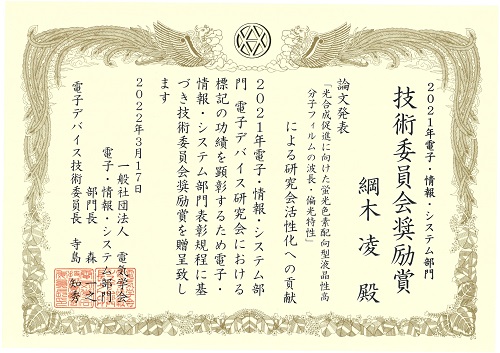 2021年電子・情報・システム部門
技術委員会奨励賞
綱木 凌 殿
論文発表
「光合成促進に向けた蛍光色素配向型液晶性高
分子フィルムの波長・偏光特性」
による研究会活性化への貢献
2021年電子・情報・システム部
門 電子デバイス研究会における
標記の功績を顕彰するため電子・
情報・システム部門表彰規程に基
づき技術委員会奨励賞を贈呈致し
ます
2022年3月17日
一般社団法人 電気学会
電子・情報・システム部門
部門長 森 一之
電子デバイス技術委員長 寺島 知秀